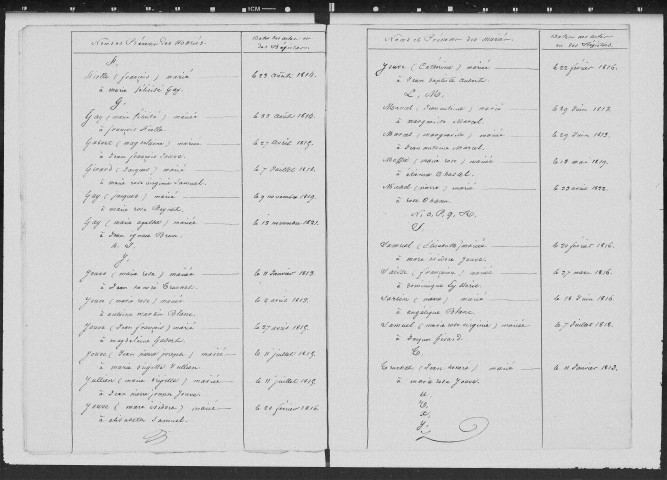 ICM
Noms et Prénoms des Mariés.
Dates des actes ou des Registres
F.
(françois) marié le 23 Août 1810.
à marie félicité Gay.
G.
Gay (marie félicité) mariée le 23 août 1810.
à françois
Gabert (magdelaine) mariée le 27 Avril 1819.
à Jean françois Jouve.
Girard (Jacques) marié le 7 Juillet 1818.
à marie rose virginie Samuel.
Gay (jacques) marié le 9 novembre 1819.
à marie rose
Gay (marie agathe) mariée le 13 novembre 1821.
à Jean Brun.
H. I.
J.
Jouve (marie rose) mariée le 11 Janvier 1813.
à Jean honoré
Jouve (marie rose) mariée le 2 avril 1813.
à antoine martin Blanc
Jouve (Jean françois) marié le 27 avril 1819.
à magdelaine Gabert.
Jouve (Jean pierre joseph) marié le 11 juillet 1819.
à marie Jullian
Jullian (marie) mariée le 11 juillet 1819.
à Jean pierre joseph Jouve.
Jouve (marc isidore) marié le 20 février 1816.
à élisabeth Samuel.
Noms et Prénoms des mariés.
Dates des actes ou des Registres.
Jouve (Catherine) mariée le 22 février 1816.
à Jean baptiste
L. M.
Marcel (Jean antoine) marié le 29 Juin 1813.
à marguerite Marcel.
Marcel (marguerite) mariée le 29 Juin 1813.
à Jean antoine Marcel.
(marie rose) mariée le 18 mai 1819.
à étienne
Michel (pierre) marié le 23 août 1822.
à rose
N. O. P. Q. R.
S.
Samuel (Elisabeth) mariée le 20 février 1816.
à marc isidore Jouve.
(françoise) mariée le 27 mars 1816.
à dominique
le 18 Juin 1816.
à angélique Blanc
Samuel (marie rose virginie) mariée le 7 Juillet 1818.
à Jacques Girard.
T.
(Jean honoré) marié le 11 Janvier 1813.
à marie rose Jouve.
U.
V.
X.
Y.